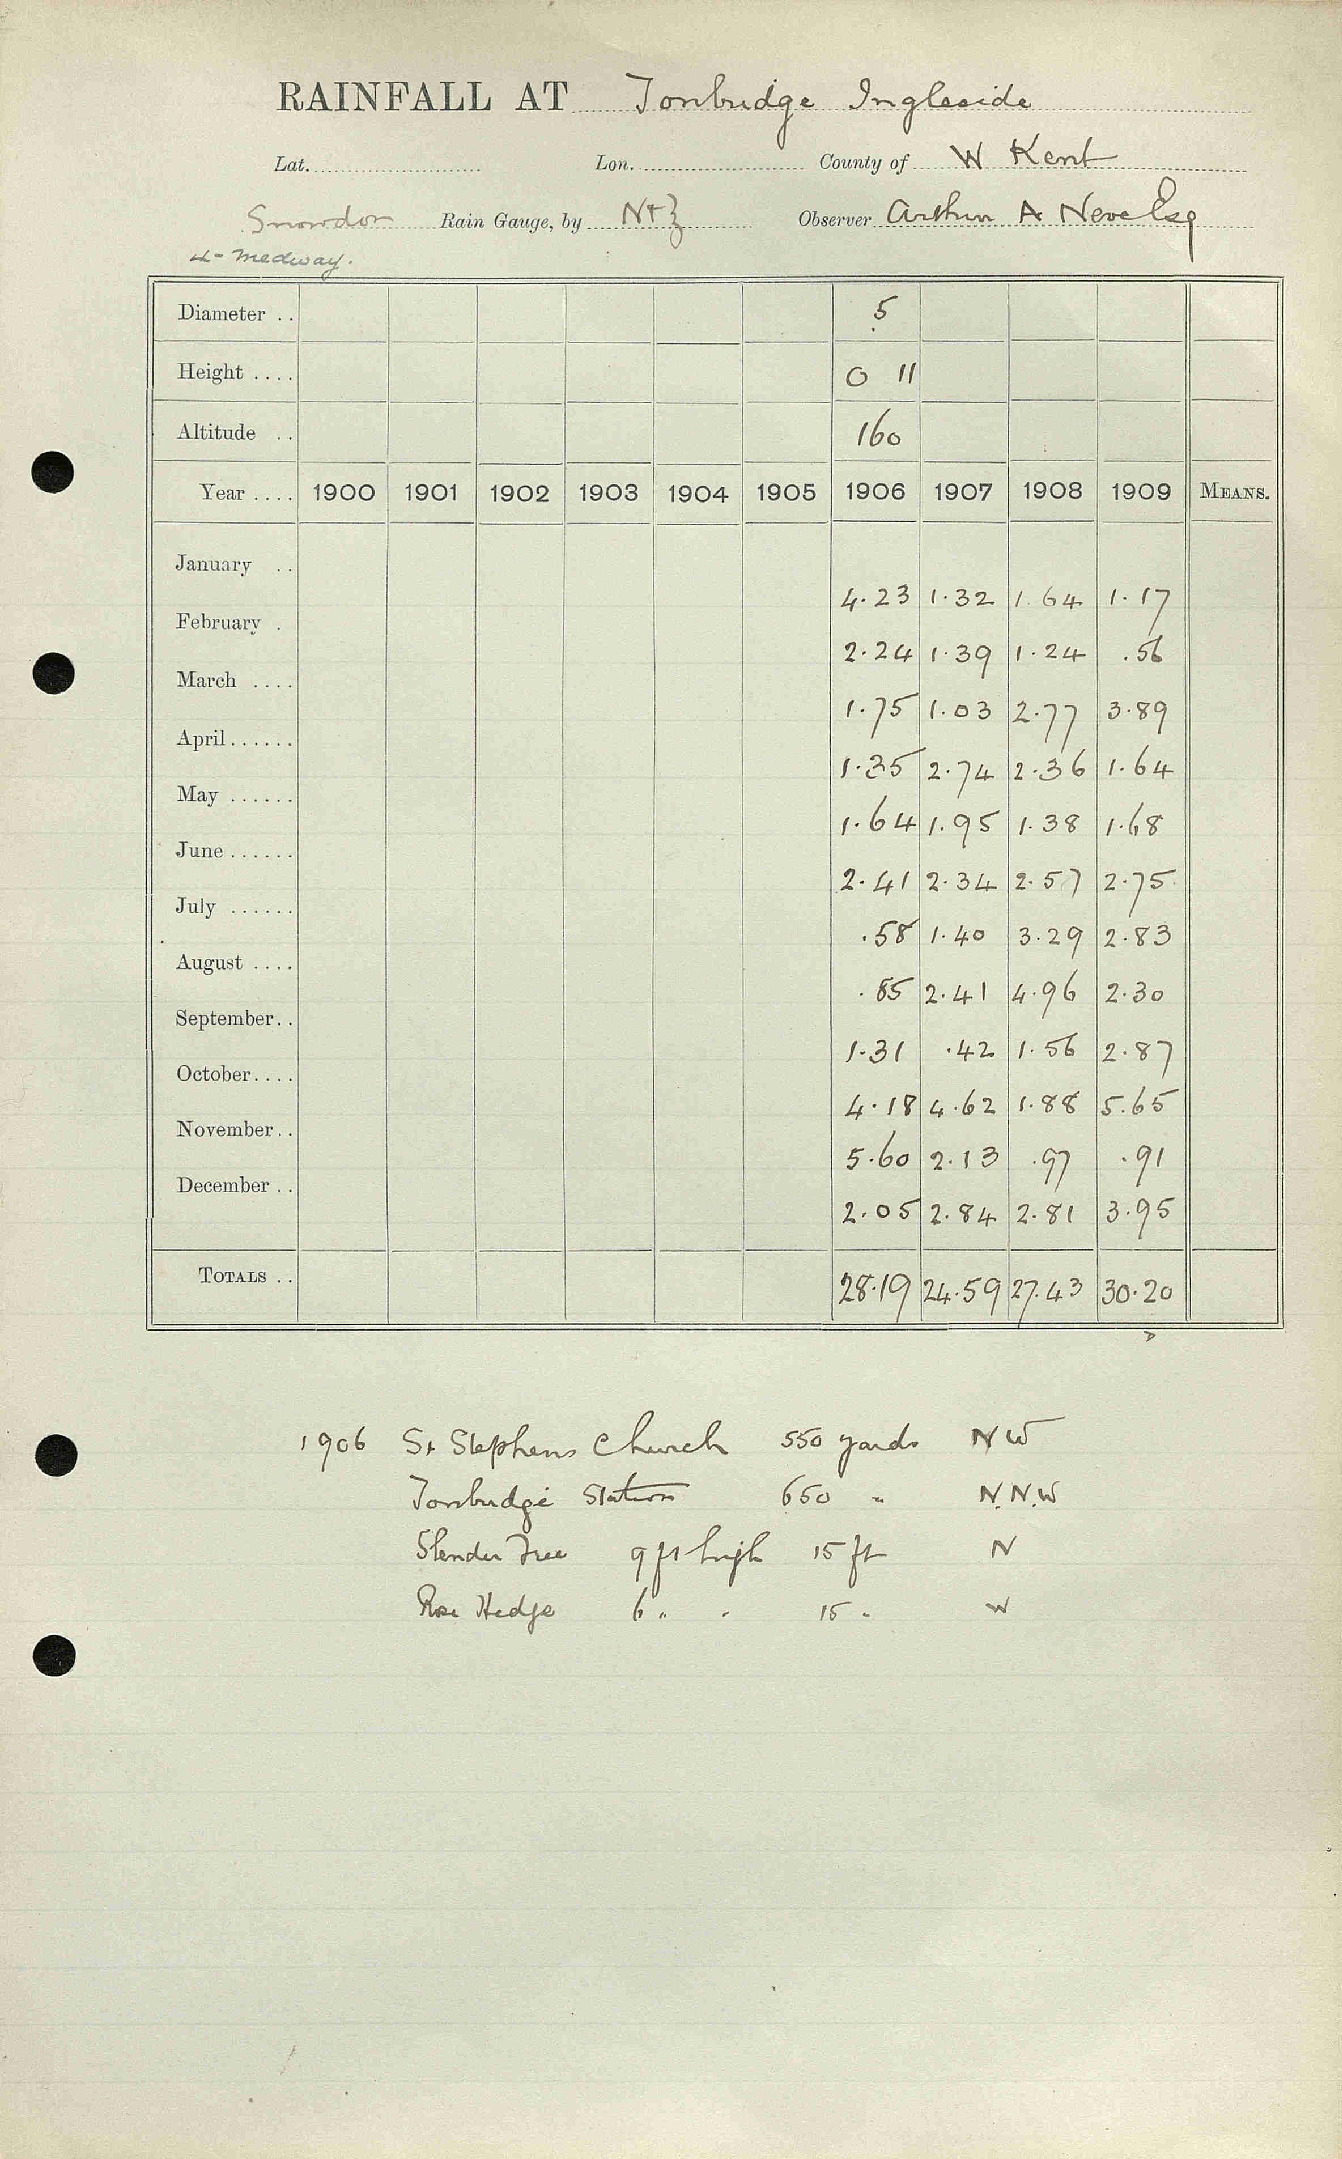 RAINFALL AT Tonbridge Ingleside
Lat. Lon. County of W Kent
Snowdon Rain Gauge, by N+Z Observer Arthur A Neve Esq
4 - Medway.
Diameter .. 5
Height .... 0 11
Altitude .. 160
Year .... 1900 1901 1902 1903 1904 1905 1906 1907 1908 1909 MEANS.
January .. 4.23 1.32 1.64 1.17
February . 2.24 1.39 1.24 .56
March .... 1.75 1.03 2.77 3.89
April...... 1.35 2.74 2.36 1.64
May ...... 1.64 1.95 1.38 1.68
June...... 2.41 2.34 2.57 2.75
July ...... .58 1.40 3.29 2.83
August .... .85 2.41 4.96 2.30
September.. 1.31 .42 1.56 2.87
October.... 4.18 4.62 1.88 5.65
November.. 5.60 2.13 .97 .91
December .. 2.05 2.84 2.81 3.95
TOTALS .. 28.19 24.59 27.43 30.20
1906 St Stephens Church 550 yards NW
Tonbridge Station 650 " N.N.W
Slender Tree 9 ft high 15 ft N
Rose Hedge 6 " " 15 " W